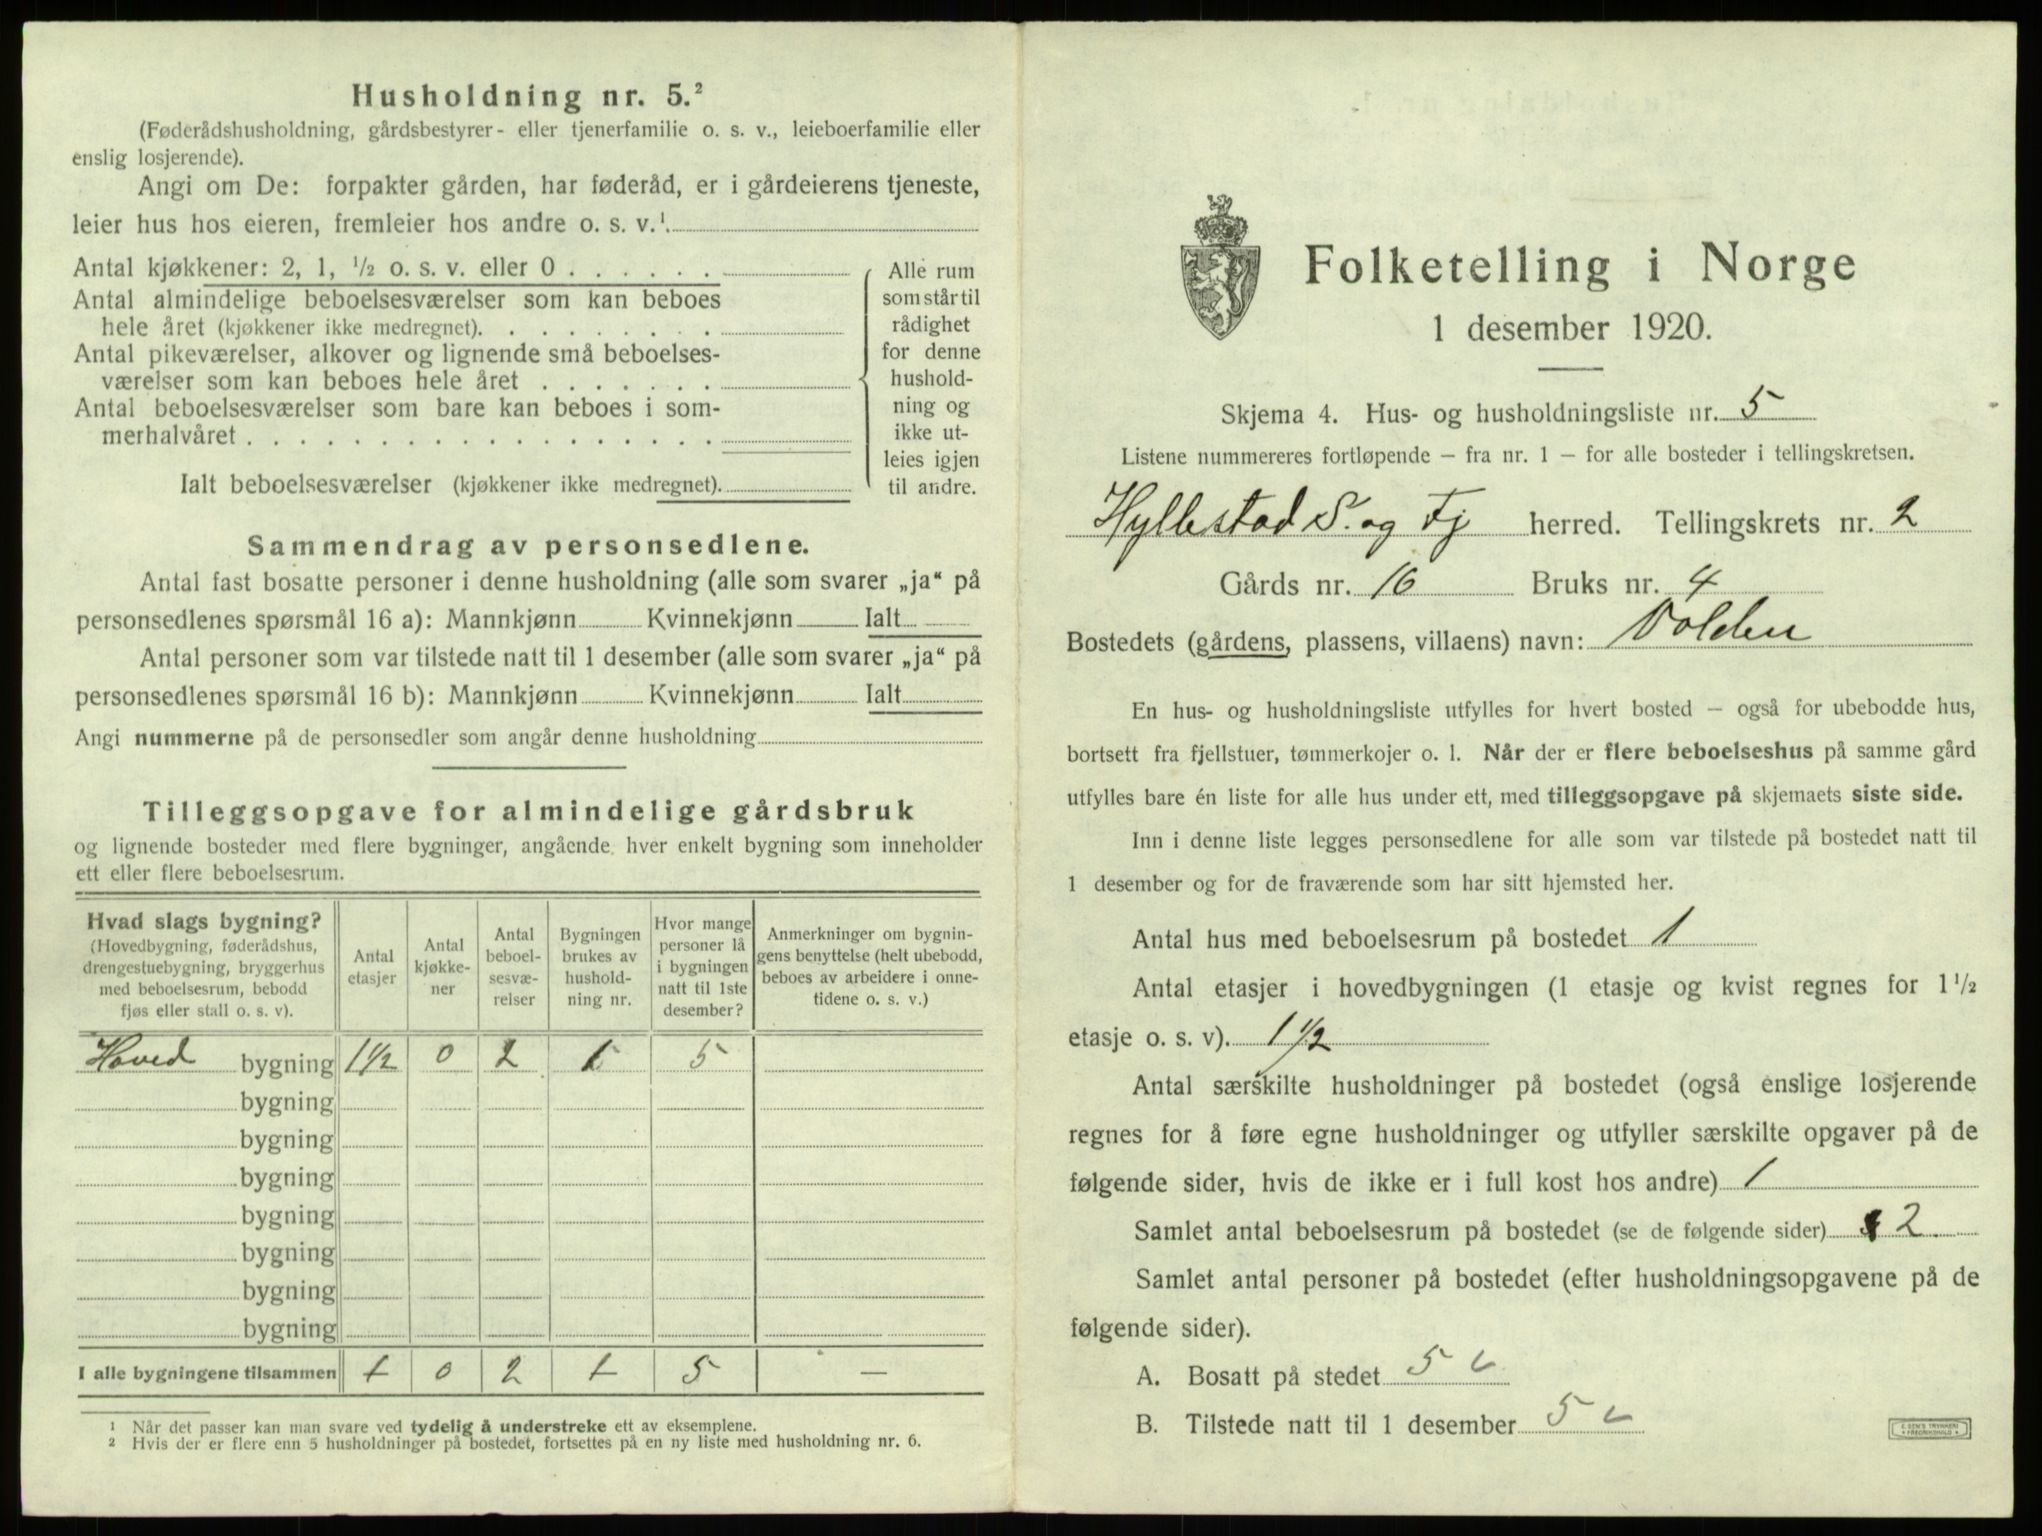 Husholdning nr. 5.²
(Føderådshusholdning, gårdsbestyrer- eller tjenerfamilie o. s. v., leieboerfamilie eller
enslig losjerende).
Angi om De: forpakter gården, har føderåd, er i gårdeierens tjeneste,
leier hus hos eieren, fremleier hos andre o. s. v.¹
Antal kjøkkener: 2, 1, ½ o. s. v. eller 0 . . . . . .
Antal almindelige beboelsesværelser som kan beboes
hele året (kjøkkener ikke medregnet). . . . . . . . .
Antal pikeværelser, alkover og lignende små beboelses-
værelser som kan beboes hele året . . . . . . .
Antal beboelsesværelser som bare kan beboes i som-
merhalvåret . . . . . . . . . . . . . . . . . .
Ialt beboelsesværelser (kjøkkener ikke medregnet).
Alle rum
som står til
rådighet
for denne
hushold-
ning og
ikke ut-
leies igjen
til andre.
Sammendrag av personsedlene.
Antal fast bosatte personer i denne husholdning (alle som svarer „ja" på
personsedlenes spørsmål 16 a): Mannkjønn Kvinnekjønn Ialt
Antal personer som var tilstede natt til 1 desember (alle som svarer „ja" på
personsedlenes spørsmål 16 b): Mannkjønn Kvinnekjønn Ialt
Angi nummerne på de personsedler som angår denne husholdning
Tilleggsopgave for almindelige gårdsbruk
og lignende bosteder med flere bygninger, angående hver enkelt bygning som inneholder
ett eller flere beboelsesrum.
Hvad slags bygning?
(Hovedbygning, føderådshus,
drengestuebygning, bryggerhus
med beboelsesrum, bebodd
fjøs eller stall o. s. v).
Antal
etasjer
Antal
kjøkke-
ner
Antal
beboel-
sesvæ-
relser
Bygningen
brukes av
hushold-
ning nr.
Hvor mange
personer lå
i bygningen
natt til 1ste
desember?
Anmerkninger om bygnin-
gens benyttelse (helt ubebodd,
beboes av arbeidere i onne-
tidene o. s. v.)
Hoved bygning 1½ 0 2 1 5
bygning
bygning
bygning
bygning
bygning
bygning
bygning
I alle bygningene tilsammen 1 0 2 1 5 —
¹ Når det passer kan man svare ved tydelig å understreke ett av eksemplene.
² Hvis der er flere enn 5 husholdninger på bostedet, fortsettes på en ny liste med husholdning nr. 6.
Folketelling i Norge
1 desember 1920.
Skjema 4. Hus- og husholdningsliste nr. 5
Listene nummereres fortløpende — fra nr. 1 — for alle bosteder i tellingskretsen.
Hyllestad S. og Fj herred. Tellingskrets nr. 2
Gårds nr. 16 Bruks nr. 4
Bostedets (gårdens, plassens, villaens) navn: Volden
En hus- og husholdningsliste utfylles for hvert bosted — også for ubebodde hus,
bortsett fra fjellstuer, tømmerkojer o. l. Når der er flere beboelseshus på samme gård
utfylles bare én liste for alle hus under ett, med tilleggsopgave på skjemaets siste side.
Inn i denne liste legges personsedlene for alle som var tilstede på bostedet natt til
1 desember og for de fraværende som har sitt hjemsted her.
Antal hus med beboelsesrum på bostedet 1
Antal etasjer i hovedbygningen (1 etasje og kvist regnes for 1½
etasje o. s. v). 1½
Antal særskilte husholdninger på bostedet (også enslige losjerende
regnes for å føre egne husholdninger og utfyller særskilte opgaver på de
følgende sider, hvis de ikke er i full kost hos andre) 1
Samlet antal beboelsesrum på bostedet (se de følgende sider) 2
Samlet antal personer på bostedet (efter husholdningsopgavene på de
følgende sider).
A. Bosatt på stedet 5
B. Tilstede natt til 1 desember 5